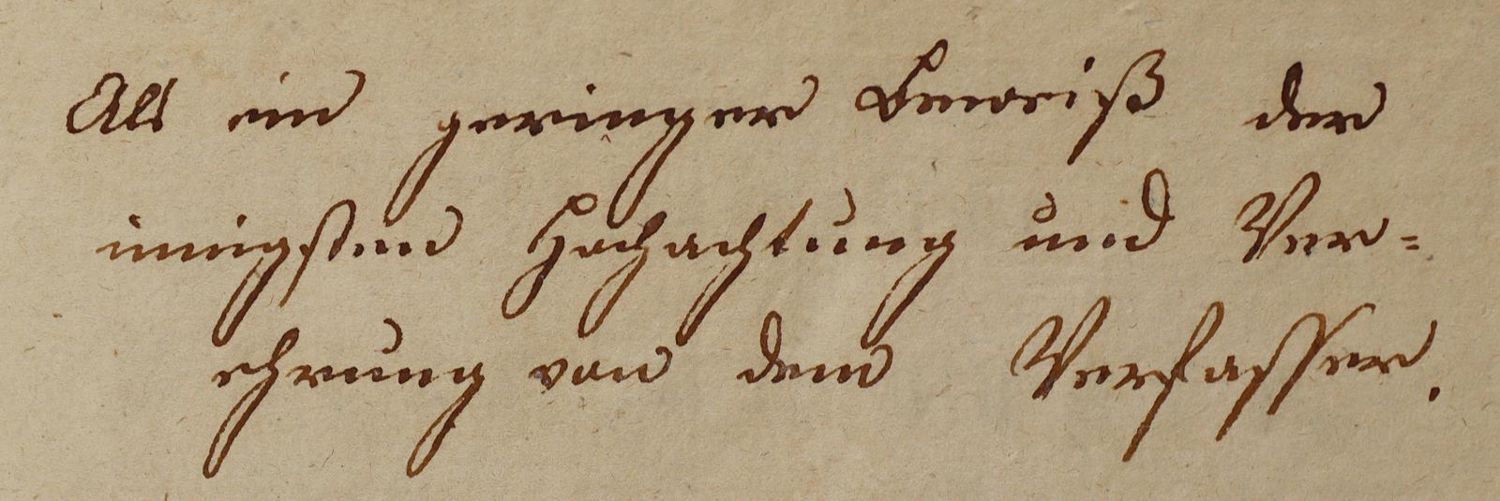 Als ein geringer Beweiß der
innigsten Hochachtung und Ver=
ehrung von dem Verfasser.